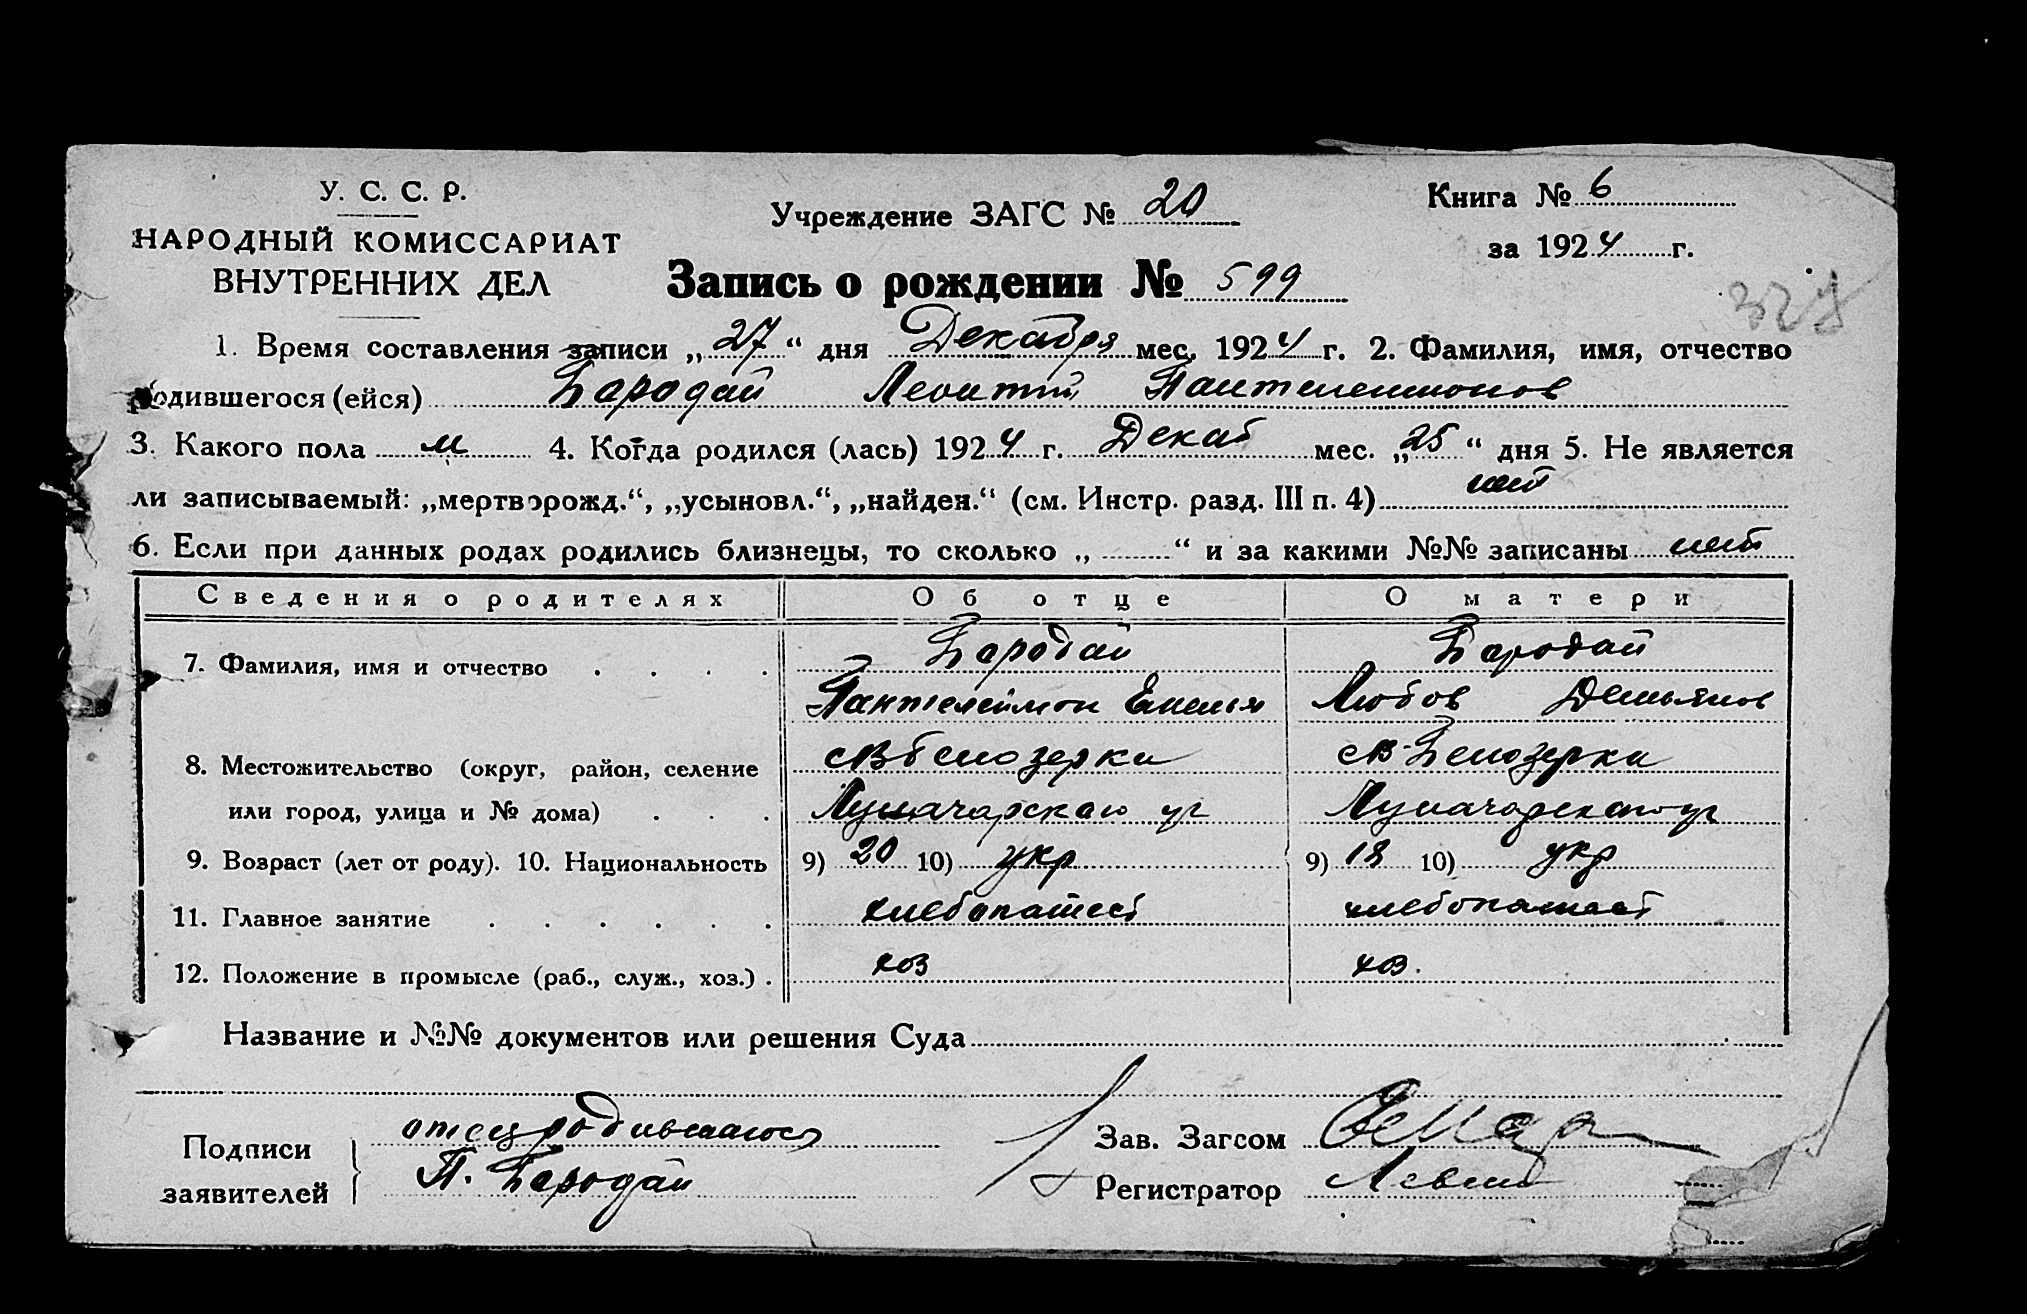 У. С. С. Р.
НАРОДНЫЙ КОМИССАРИАТ
ВНУТРЕННИХ ДЕЛ
Учреждение ЗАГС № 20
Книга № 6
за 1924 г.
Запись о рождении № 599
1. Время составления записи „27“ дня Декабря мес. 1924 г. 2. Фамилия, имя, отчество
родившегося (ейся) Бородай Леонтий Пантелеимонов
3. Какого пола м 4. Когда родился (лась) 1924 г. Декаб мес. „25“ дня 5. Не является
ли записываемый: „мертворожд.“, „усыновл.“, „найден.“ (см. Инстр. разд. III п. 4) нет
6. Если при данных родах родились близнецы, то сколько „ “ и за какими №№ записаны нет
Сведения о родителях Об отце О матери
7. Фамилия, имя и отчество Бородай Бородай
Пантелеимон Емельян Любов Демьянов
8. Местожительство (округ, район, селение с В Белозерка с В-Белозерка
или город, улица и № дома) Луначарскаго ул Луначарскаго ул
9. Возраст (лет от роду). 10. Национальность 9) 20 10) укр 9) 18 10) укр
11. Главное занятие хлебопашест хлебопашест
12. Положение в промысле (раб., служ., хоз.) хоз хоз.
Название и №№ документов или решения Суда
Подписи
заявителей
отец родившагося
П. Бородай
Зав. Загсом
Регистратор